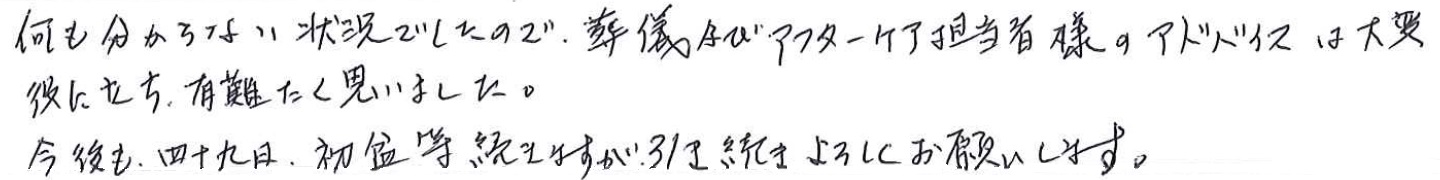 何も分からない状況でしたので、葬儀及びアフターケア担当者様のアドバイスは大変
役に立ち、有難たく思いました。
今後も、四十九日、初盆等続きますが引き続きよろしくお願いします。